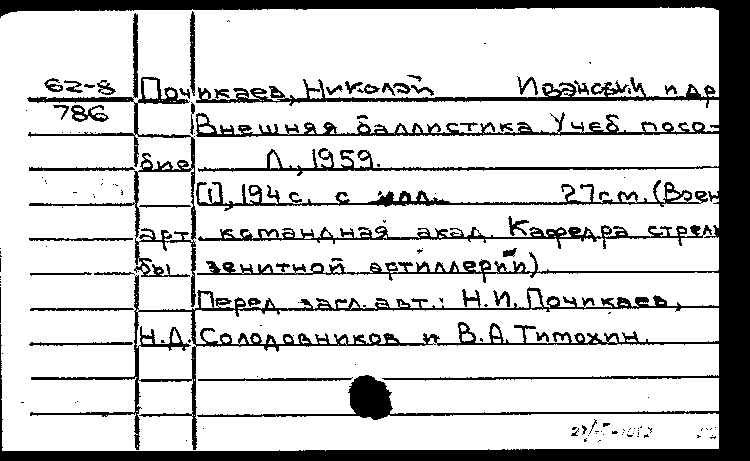 62-8 Почикаев, Николай Иванович и др
786 Внешняя баллистика. Учеб. посо-
бие Л., 1959.
[1], 194 с. с илл. 27 см. (Воен
арт. командная акад. Кафедра стрель
бы зенитной артиллерии)
Перед загл. авт.: Н.И. Почикаев,
Н.Д. Солодовников и В.А. Тимохин.